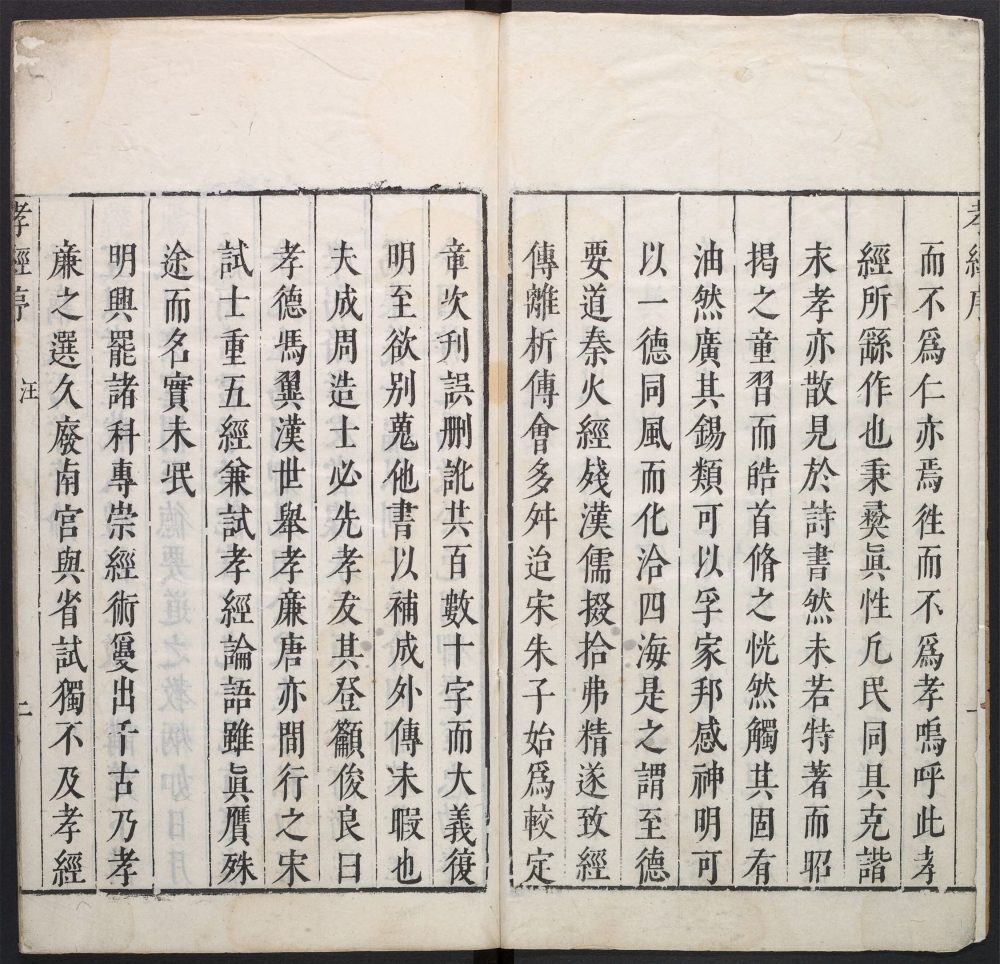 孝經序
一
而不爲仁亦焉徃而不爲孝嗚呼此孝
經所繇作也秉彜眞性凢民同具克諧
末孝亦散見於詩書然未若特著而昭
揭之童習而皓首脩之恍然觸其固有
油然廣其錫類可以孚家邦感神明可
以一德同風而化洽四海是之謂至德
要道秦火經殘漢儒掇拾弗精遂致經
傳離析傅會多舛迨宋朱子始爲較定
章次刋誤刪訛共百數十字而大義復
明至欲别蒐他書以補成外傳未暇也
夫成周造士必先孝友其登籲俊良曰
孝德馮翼漢世舉孝廉唐亦間行之宋
試士重五經兼試孝經論語雖眞贋殊
途而名實未泯
明興罷諸科專崇經術敻出千古乃孝
廉之選久廢南宫與省試獨不及孝經
孝經序 汪 二